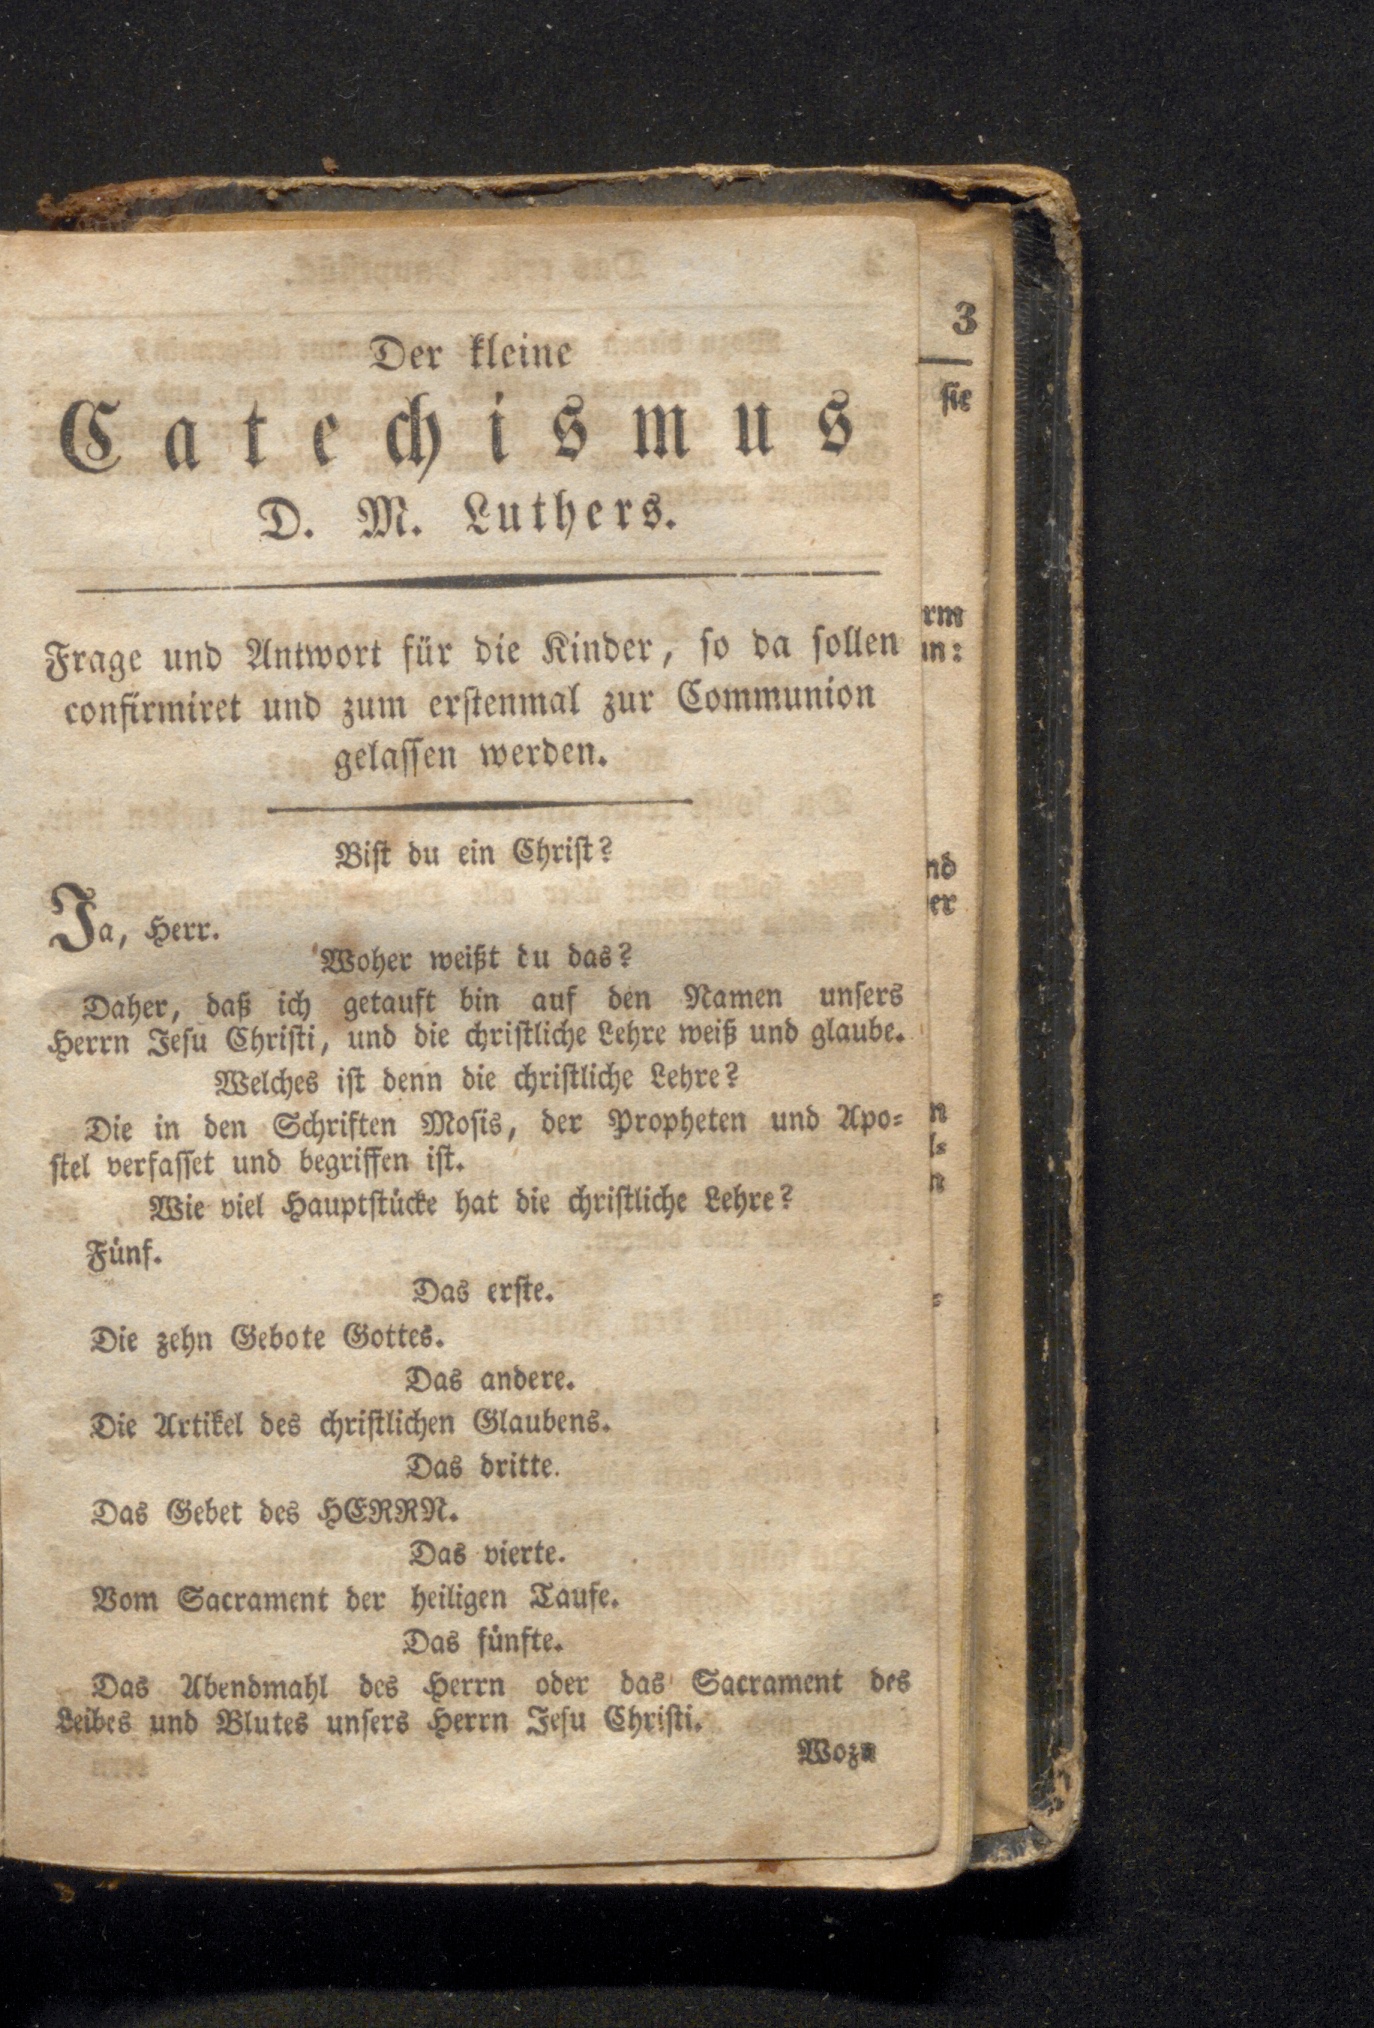 Der kleine
Catechismus
D. M. Luthers.
Frage und Antwort für die Kinder, so da sollen
confirmiret und zum erstenmal zur Communion
gelassen werden.
Bist du ein Christ?
Ja, Herr.
Woher weißt du das?
Daher, daß ich getauft bin auf den Namen unsers
Herrn Jesu Christi, und die christliche Lehre weiß und glaube.
Welches ist denn die christliche Lehre?
Die in den Schriften Mosis, der Propheten und Apo-
stel verfasset und begriffen ist.
Wie viel Hauptstücke hat die christliche Lehre?
Fünf.
Das erste.
Die zehn Gebote Gottes.
Das andere.
Die Artikel des christlichen Glaubens.
Das dritte.
Das Gebet des HERRN.
Das vierte.
Vom Sacrament der heiligen Taufe.
Das fünfte.
Das Abendmahl des Herrn oder das Sacrament des
Leibes und Blutes unsers Herrn Jesu Christi.
Wozu
3
sie